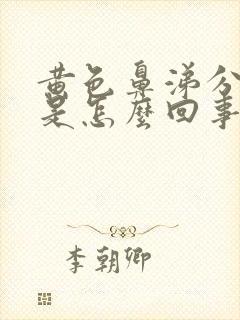 黄色鼻涕分
是怎麼回事
李朝卿